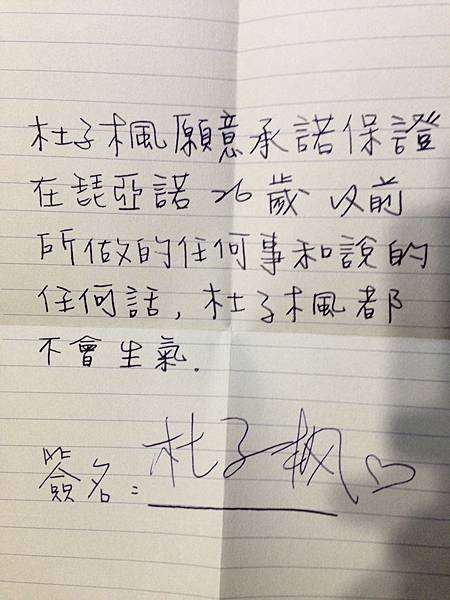 杜子楓願意承諾保證
在琵亞諾26歲以前
所做的任何事和說的
任何話,杜子楓都
不會生氣.
簽名:杜子楓♡